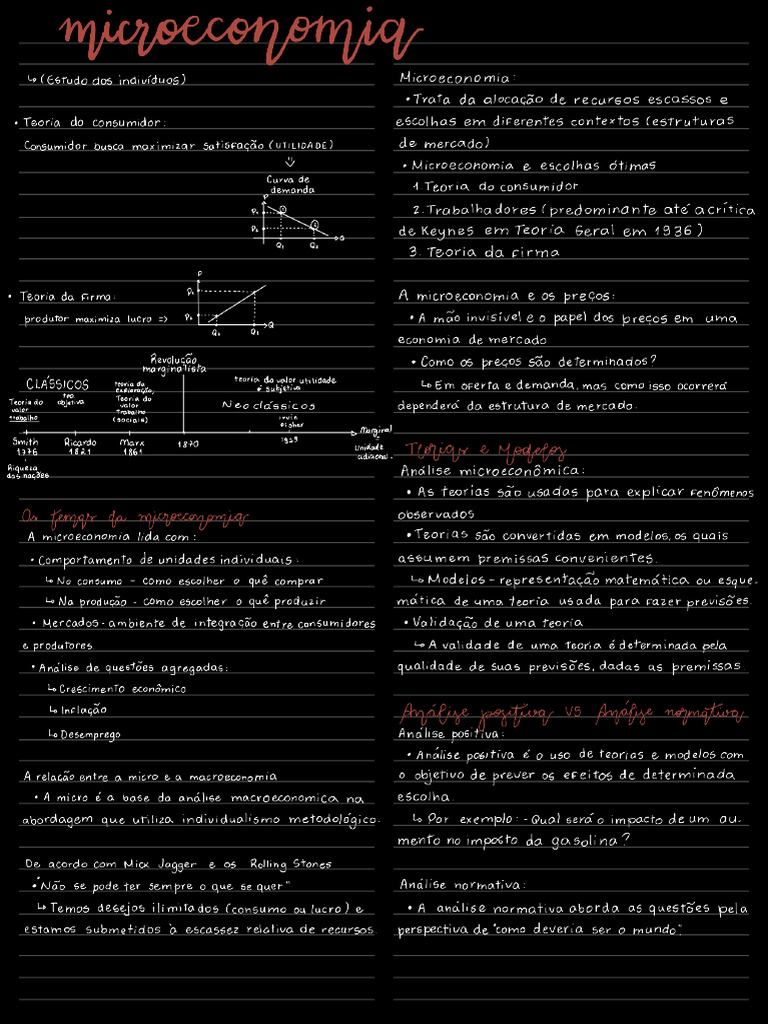 microeconomia
↳ (Estudo dos indivíduos)
• Teoria do consumidor:
Consumidor busca maximizar satisfação (UTILIDADE)
Curva de
demanda
P
P₁
P₂
①
②
Q₁
Q₂
Q
• Teoria da firma:
produtor maximiza lucro =>
P
Q
Revolução
marginalista
CLÁSSICOS
Teoria do
valor
trabalho
teo.
objetiva
teoria da
exploração,
Teoria do
valor
Trabalho
(sociais)
teoria do valor utilidade
é subjetiva
Neoclássicos
Irvin
Fisher
Smith
1776
Ricardo
1821
Marx
1861
1870
1929
Marginal
Unidade
adicional
Riqueza
das nações
Os temas da microeconomia
A microeconomia lida com:
• Comportamento de unidades individuais:
↳ No consumo - como escolher o quê comprar
↳ Na produção - como escolher o quê produzir
• Mercados - ambiente de integração entre consumidores
e produtores
• Análise de questões agregadas:
↳ Crescimento econômico
↳ Inflação
↳ Desemprego
A relação entre a micro e a macroeconomia
• A micro é a base da análise macroeconomica na
abordagem que utiliza individualismo metodológico.
De acordo com Micx Jagger e os Rolling Stones
• "Não se pode ter sempre o que se quer"
↳ Temos desejos ilimitados (consumo ou lucro) e
estamos submetidos à escassez relativa de recursos.
Microeconomia:
• Trata da alocação de recursos escassos e
escolhas em diferentes contextos (estruturas
de mercado)
• Microeconomia e escolhas ótimas
1. Teoria do consumidor
2. Trabalhadores (predominante até a crítica
de Keynes em Teoria Geral em 1936)
3. Teoria da firma
A microeconomia e os preços:
• A mão invisível e o papel dos preços em uma
economia de mercado
• Como os preços são determinados?
↳ Em oferta e demanda, mas como isso ocorrerá
dependerá da estrutura de mercado.
Teorias e Modelos
Análise microeconômica:
• As teorias são usadas para explicar fenômenos
observados
• Teorias são convertidas em modelos, os quais
assumem premissas convenientes.
↳ Modelos - representação matemática ou esque-
mática de uma teoria usada para fazer previsões.
• Validação de uma teoria
↳ A validade de uma teoria é determinada pela
qualidade de suas previsões, dadas as premissas.
Análise positiva VS Análise normativa
Análise positiva:
• Análise positiva é o uso de teorias e modelos com
o objetivo de prever os efeitos de determinada
escolha.
↳ Por exemplo: - Qual será o impacto de um au-
mento no imposto da gasolina?
Análise normativa:
• A análise normativa aborda as questões pela
perspectiva de "como deveria ser o mundo".